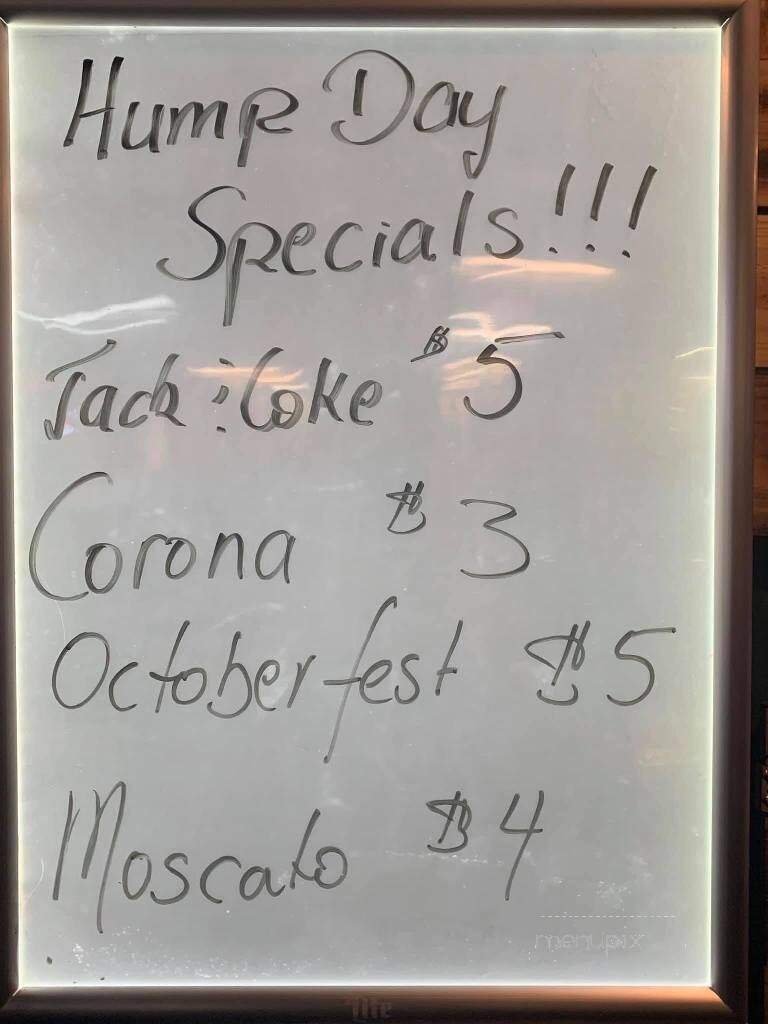 Hump Day
Specials!!!
Jack : Coke $5
Corona $3
Octoberfest $5
Moscato $4
menupix
Lite